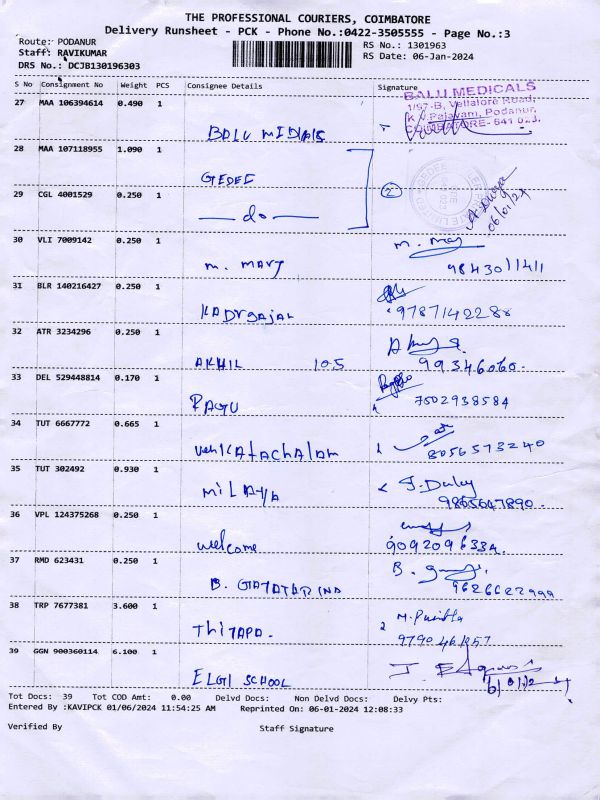 THE PROFESSIONAL COURIERS, COIMBATORE
Delivery Runsheet - PCK - Phone No.:0422-3505555 - Page No.:3
Route: PODANUR
Staff: RAVIKUMAR
DRS No.: DCJB130196303
RS No.: 1301963
RS Date: 06-Jan-2024
S No Consignment No Weight PCS Consignee Details Signature
27 MAA 106394614 0.490 1
BALU MEDICALS
1/97-B, Vellalore Road,
Podanur,
COIMBATORE- 641 023.
28 MAA 107118955 1.090 1
GEDEE
2
29 CGL 4001529 0.250 1
do
06/01/24
30 VLI 7009142 0.250 1
M. MARY
9843011411
31 BLR 140216427 0.250 1
9787142288
32 ATR 3234296 0.250 1
AKHIL 105
99346060.
33 DEL 529448814 0.170 1
RAGU
7502938584
34 TUT 6667772 0.665 1
venkatachalam
8056573240
35 TUT 302492 0.930 1
9865647890.
36 VPL 124375268 0.250 1
welcome
9092096334.
37 RMD 623431 0.250 1
38 TRP 7677381 3.600 1
39 GGN 900360114 6.100 1
ELGI SCHOOL
Tot Docs: 39 Tot COD Amt: 0.00 Delvd Docs: Non Delvd Docs: Delvy Pts:
Entered By :KAVIPCK 01/06/2024 11:54:25 AM Reprinted On: 06-01-2024 12:08:33
Verified By Staff Signature